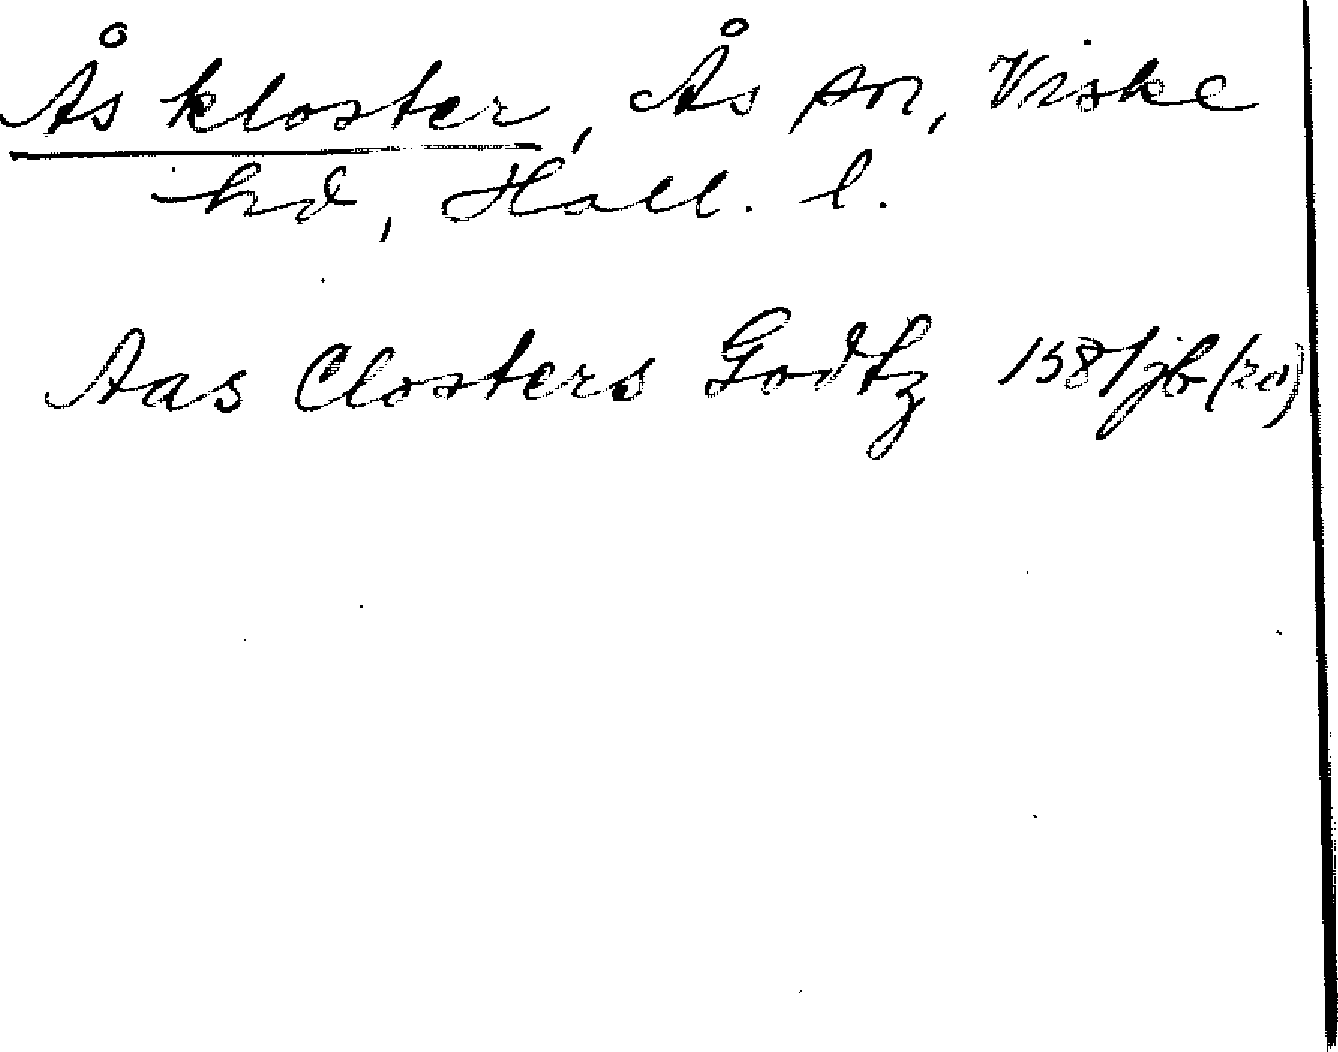 Ås kloster, Ås sn, Viske
hd, Hall. l.
Aas Closters Godtz 1581 jb (20)